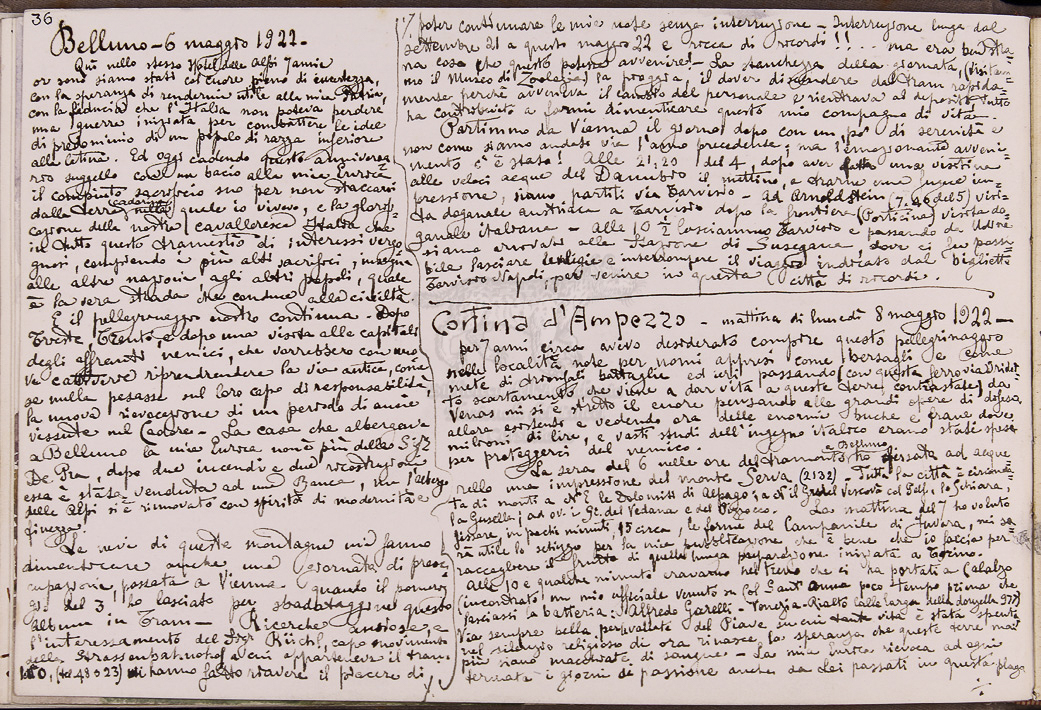 36
Belluno - 6 maggio 1922 -
Qui nello stesso Hotel delle Alpi 7 anni
or sono siamo stati col cuore pieno di incertezza,
con la speranza di rendermi utile alla mia Patria,
con la fiducia che l'Italia non poteva perdere
una guerra iniziata per combattere le idee
di predominio di un popolo di razza inferiore
alla latina. Ed oggi cadendo questo anniversa
rio suggello con un bacio alla mia Enrica
il compiuto sacrificio suo per non staccarsi
dalla terra cadorina nella quale io vivevo, e la glorifi-
cazione della nostra cavalleresca Italia che
in tutto questo tramestio di interessi vergo
gnosi, comprendo i più alti sacrifici, insegna
alle altre nazioni, agli altri popoli, quale
è la vera strada che conduce alla civiltà
E il pellegrinaggio nostro continua. Dopo
Trieste, Trento, e dopo una visita alle capitali
degli nemici, che vorrebbero con nuo
ve riprendere la via antica, come
se nulla pesasse sul loro capo di responsabilità,
la nuova rievocazione di un periodo di ansie,
vissute nel Cadore - La casa che albergava
a Belluno la mia Enrica non è più delle Sig.re
De Pra, dopo due incendi e due ricostruzioni
essa è stata venduta ad una Banca, ma l'albergo
delle Alpi si è rinnovato con spirito di modernità e
finezza.
Le nevi di queste montagne mi fanno
dimenticare anche una giornata di preoc
cupazione, passata a Vienna quando il pomerig
gio del 3, ho lasciato per sbadataggine questo
album in Tram - Ricerche ansiose e
l'interessamento del capo movimento
della Strassenbahnhof a cui apparteneva il tram
(tel. 48023) mi hanno fatto riavere il piacere di
poter continuare le mie note senza interruzione - Interruzione lunga dal
settembre 21 a questo maggio 22 e ricca di ricordi!!... ma era ben stra
na cosa che questo potesse avvenire! - La stanchezza della giornata, (visitam
mo il Museo di Zoologia) la pioggia, il dover discendere dal tram rapida-
mente perché avveniva il cambio del personale e rientrava al deposito, tutto
ha contribuito a farmi dimenticare questo mio compagno di vita.
Partimmo da Vienna il giorno dopo con un po' di serenità e
non come siamo andati via l'anno precedente; ma l'emozionante avveni-
mento c'è stato! Alle 21,20 del 4, dopo aver fatta una visitina
alle veloci acque del Danubio il mattino, a trarne una fugace im-
pressione, siamo partiti via Tarvisio - Ad Arnoldstein (7.46 del 5) visi-
ta doganale austriaca a Tarvisio dopo la frontiera (Porticina) visita do-
ganale italiana - Alle 10 ½ lasciammo Tarvisio e passando da Udine
siamo arrivati alla Stazione di Susegana, dove ci fu possi
bile lasciare le valigie e interrompere il viaggio indicato dal biglietto
Tarvisio Napoli, per venire in questa città di ricordi.
Cortina d'Ampezzo - mattina di lunedì 8 maggio 1922 -
per 7 anni circa avevo desiderato compire questo pellegrinaggio
nelle località note per nomi appresi come bersagli e come
mete di trionfali battaglie ed ieri passando con questa ferrovia a ridot-
to scartamento, che viene a dar vita a queste terre contrastate, da
Venas mi si è stretto il cuore pensando alle grandi opere di difesa
allora esistenti e vedendo ora delle enormi buche e frane dove
milioni di lire, e vasti studi dell'ingegno italico erano stati spesi
per proteggerci dal nemico.
La sera del 6 nelle ore del tramonto a Belluno ho fissata ad acque
rello una impressione del monte Serva (2132) - Tutta la città è circonda
ta di monti a N.E. le Dolomiti di Alpago; a N. il Gr. del Vescovà col Pelf, lo Schiara,
la Gusella; ad ov. i Gr. del Vedana e del Pizzocco. La mattina del 7 ho voluto
fissare, in pochi minuti, 15 circa, le forme del Campanile di Juvara, mi sa
rà utile lo schizzo per la mia pubblicazione che è bene che io faccia per
raccogliere il frutto di quella lunga preparazione iniziata a Torino.
Alle 10 e qualche minuto eravamo nel treno che ci ha portati a Calalzo
(incontrato un mio ufficiale venuto su Col Sant'Anna poco tempo prima che
lasciassi la batteria: Alfredo Garelli - Venezia - Rialto Calle larga della donzella 972)
Via sempre bella, per la vallata del Piave in cui tante vita è stata spenta
nel silenzio religioso di ora rinasce, la speranza che queste terre mai
più siano macchiate di sangue. - La mia Enrica rievoca ad ogni
fermata i giorni di passione anche da lei passati in questa plaga